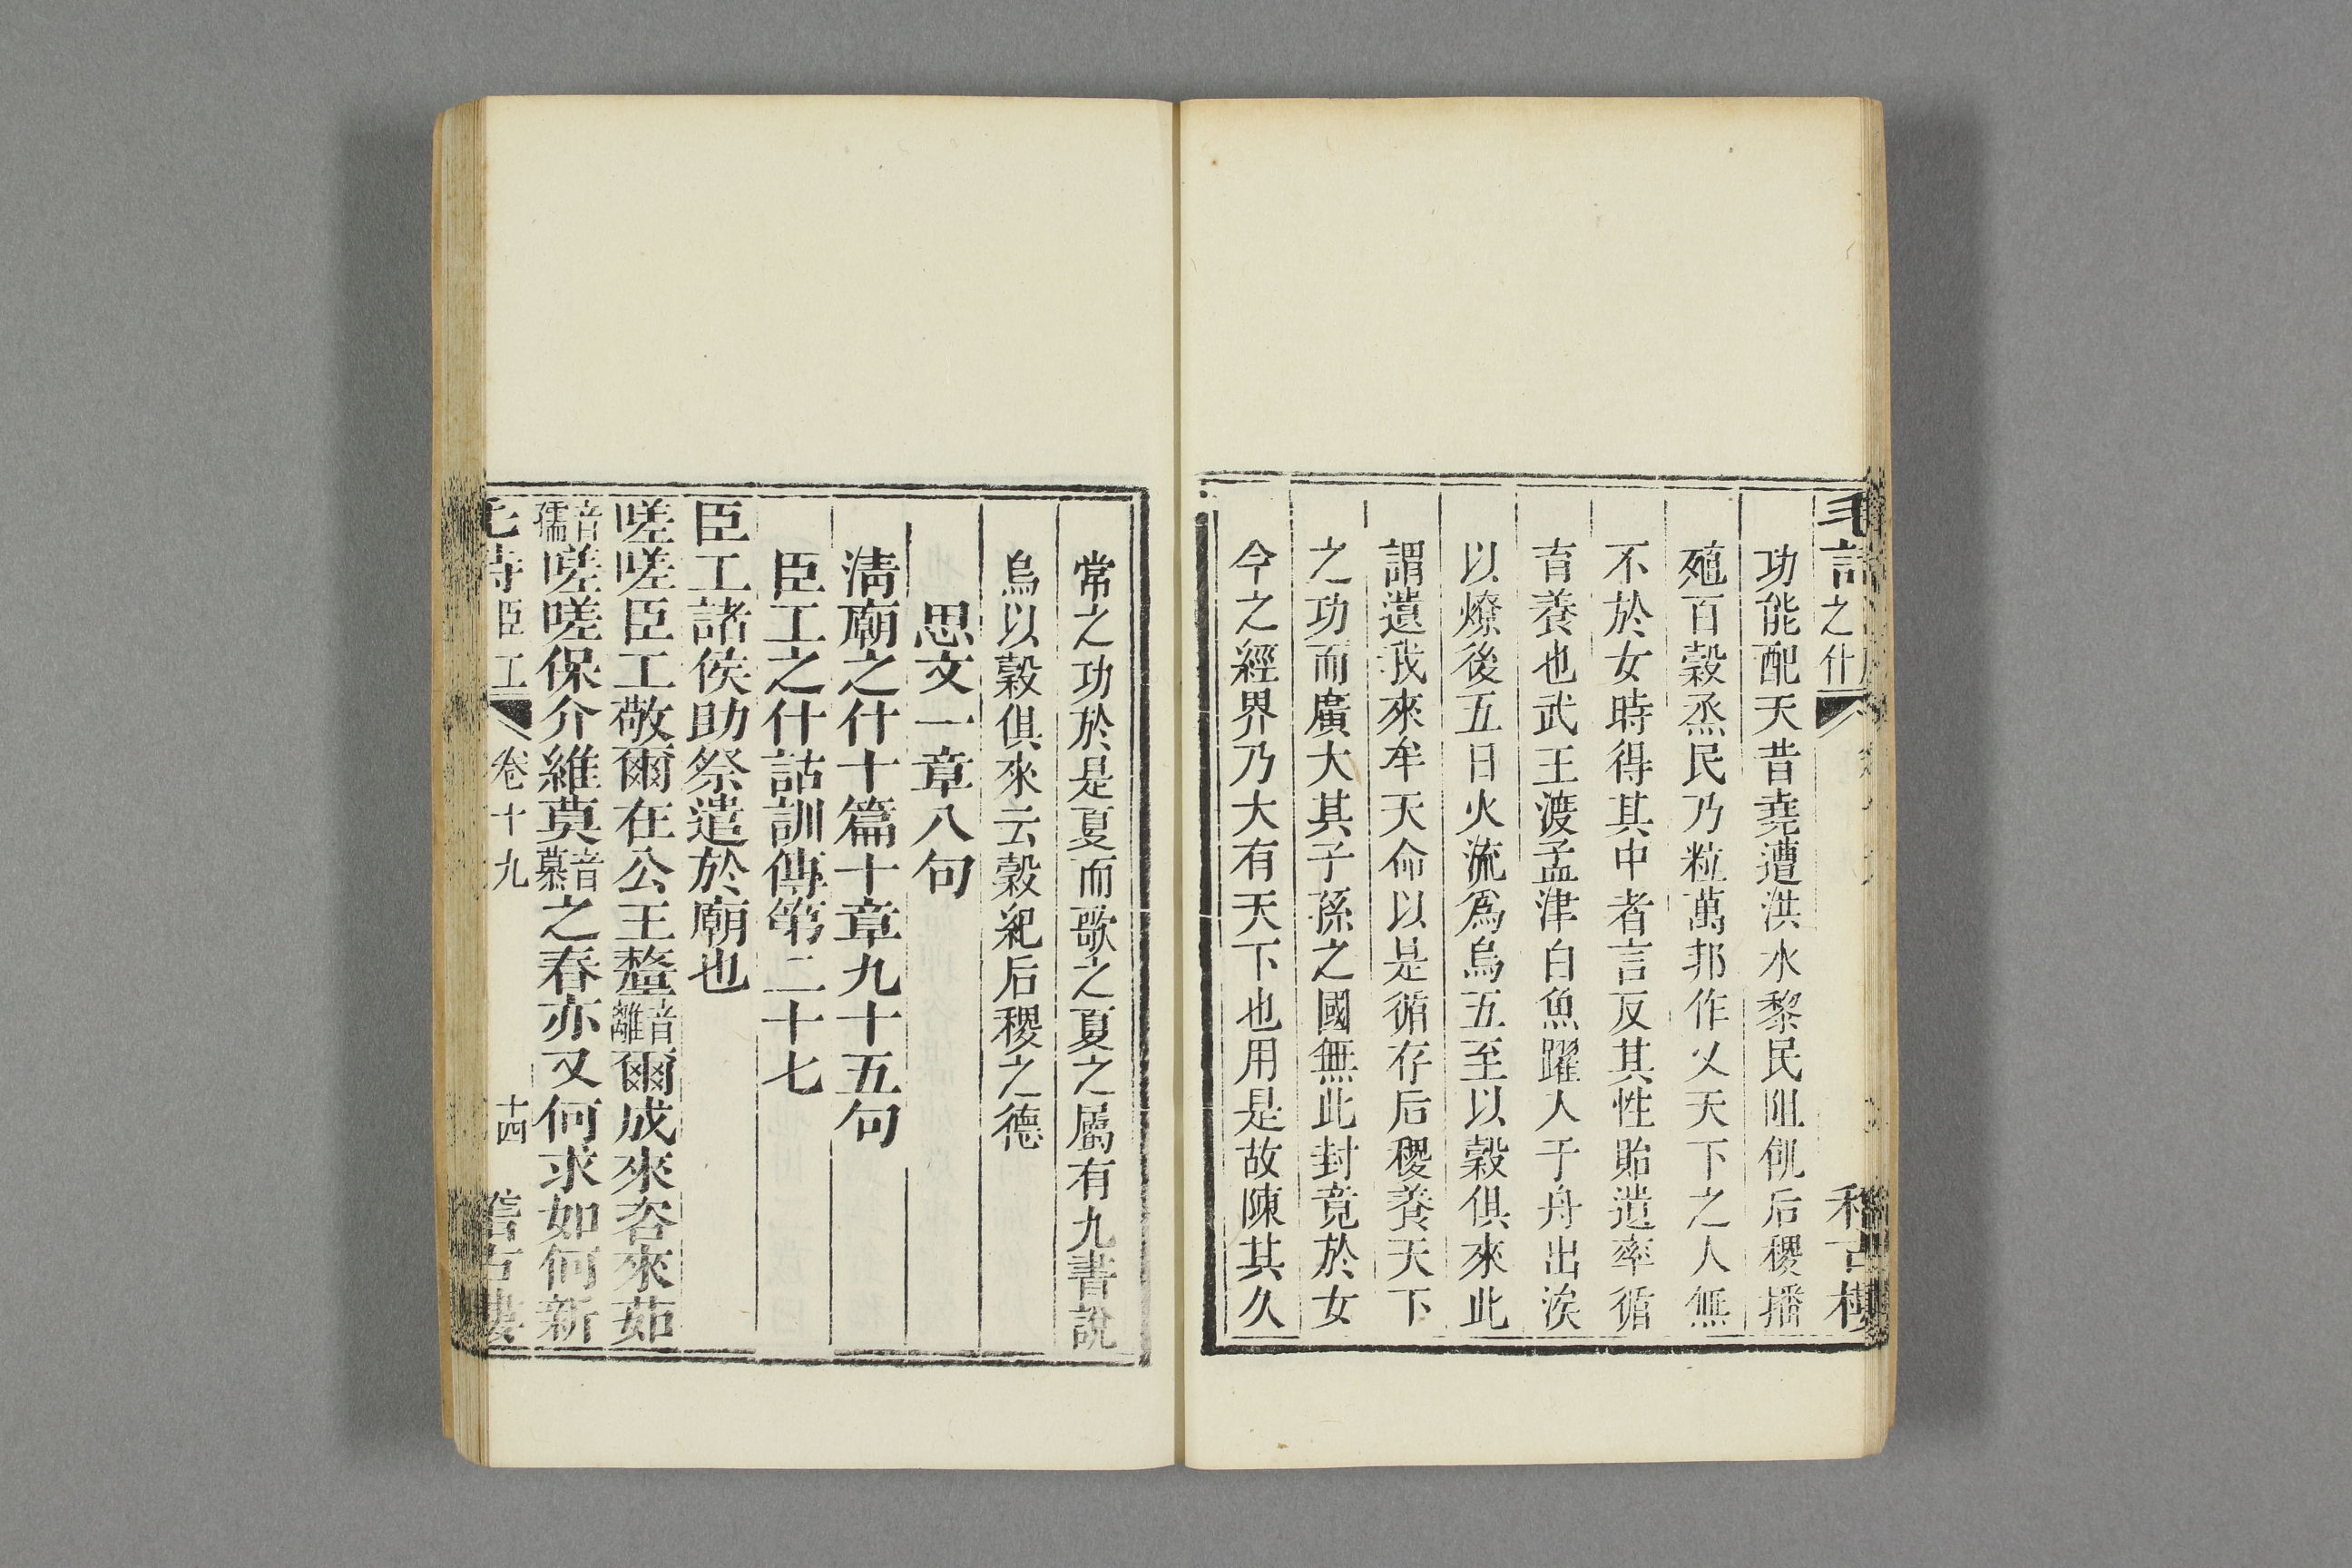 功能配天昔堯遭洪水黎民阻飢后稷播
殖百穀烝民乃粒萬邦作乂天下之人無
不於女時得其中者言反其性貽遺率循
育養也武王渡孟津白魚躍入于舟出涘
以燎後五日火流爲烏五至以穀俱來此
謂遺我來牟天命以是循存后稷養天下
之功而廣大其子孫之國無此封竟於女
今之經界乃大有天下也用是故陳其久
常之功於是夏而歌之夏之屬有九書說
烏以穀俱來云穀紀后稷之德
思文一章八句
淸廟之什十篇十章九十五句
臣工之什詁訓傳第二十七
臣工諸侯助祭遣於廟也
嗟嗟臣工敬爾在公王釐音離爾成來咨來茹
音孺嗟嗟保介維莫音慕之春亦又何求如何新
臣工 卷十九 十四